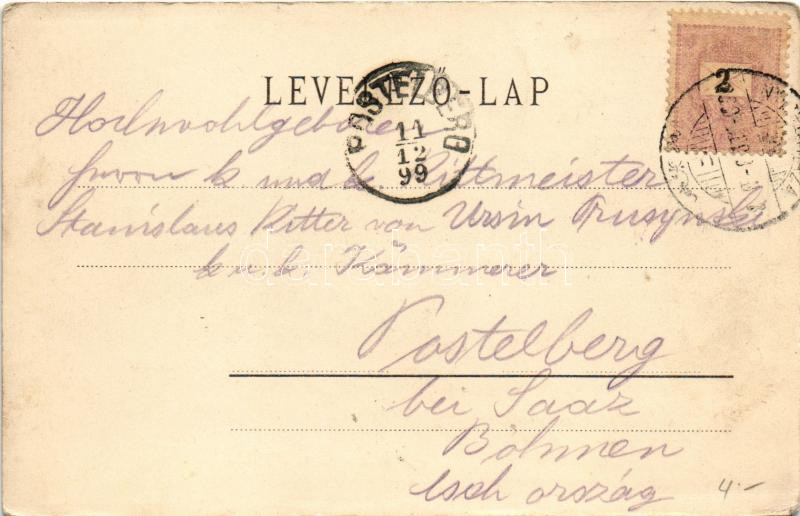 LEVELEZŐ-LAP
POSTELBERG
11
12
99
2
Hochwohlgeboren
Herrn k und k Rittmeister
Stanislaus Ritter von Ursin Prusynski
k u. k. Kämmerer
Postelberg
bei Saaz
Böhmen
Cseh ország
4.-
darabanth